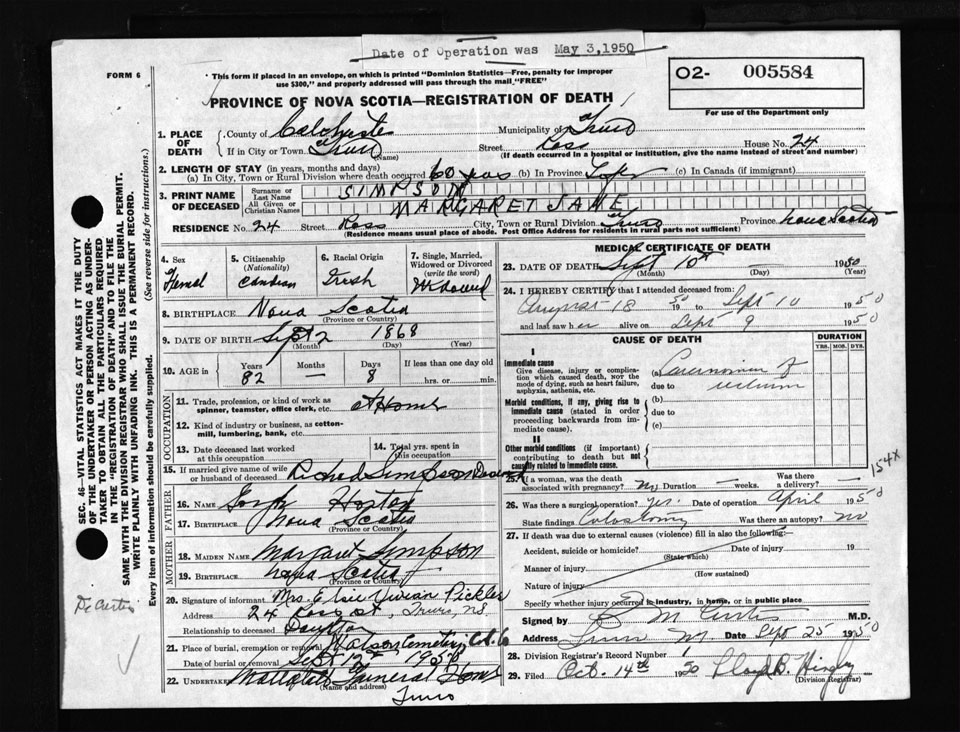 Date of Operation was May 3, 1950
FORM 6
This form if placed in an envelope, on which is printed "Dominion Statistics—Free, penalty for improper
use $300," and properly addressed will pass through the mail "FREE"
O2- 005584
For use of the Department only
PROVINCE OF NOVA SCOTIA—REGISTRATION OF DEATH
1. PLACE OF DEATH { County of Colchester Municipality of Truro
If in City or Town Truro (Name) Street Ross House No. 24
(If death occurred in a hospital or institution, give the name instead of street and number)
2. LENGTH OF STAY (in years, months and days)
(a) In City, Town or Rural Division where death occurred 60 years (b) In Province Life (c) In Canada (if immigrant)
3. PRINT NAME OF DECEASED { Surname or Last Name SIMPSON
All Given or Christian Names MARGARET JANE
RESIDENCE No. 24 Street Ross City, Town or Rural Division Truro Province Nova Scotia
(Residence means usual place of abode. Post Office Address for residents in rural parts not sufficient)
4. Sex Femal
5. Citizenship (Nationality)
6. Racial Origin Irish
7. Single, Married, Widowed or Divorced (write the word) Widowed
8. BIRTHPLACE Nova Scotia
(Province or Country)
9. DATE OF BIRTH Sept 2 1868
(Month) (Day) (Year)
10. AGE in { Years 82 Months — Days 8 If less than one day old
hrs. or min.
OCCUPATION
11. Trade, profession or kind of work as
spinner, teamster, office clerk, etc. At Home
12. Kind of industry or business, as cotton-
mill, lumbering, bank, etc.
13. Date deceased last worked at this occupation
14. Total yrs. spent in this occupation
15. If married give name of wife
or husband of deceased Simpson
FATHER
16. Name Horton
17. Birthplace Nova Scotia
(Province or Country)
MOTHER
18. MAIDEN NAME Margaret Simpson
19. BIRTHPLACE Nova Scotia
(Province or Country)
20. Signature of informant Mrs. Elsie Vivian Pickler
Address 24 Ross St, Truro, NS
Relationship to deceased
21. Place of burial, cremation or removal Watson Cemetery Col. Co
Date of burial or removal Sept 12th 1950
22. UNDERTAKER Funeral Home
(Name and address)
Truro
MEDICAL CERTIFICATE OF DEATH
23. DATE OF DEATH Sept 10th 1950
(Month) (Day) (Year)
24. I HEREBY CERTIFY that I attended deceased from:
August 18 1950 to Sept 10 1950
and last saw her alive on Sept 9 1950
CAUSE OF DEATH
DURATION
YRS. MOS. DYS.
I
Immediate cause
Give disease, injury or complica-
tion which caused death, NOT the
mode of dying, such as heart failure,
asphyxia, asthenia, etc.
(a) Carcinoma of
due to rectum
Morbid conditions, if any, giving rise to
immediate cause (stated in order
proceeding backwards from im-
mediate cause).
(b)
due to
(c)
II
Other morbid conditions (if important)
contributing to death but not
causally related to immediate cause.
154X
25. If a woman, was the death pregnancy? No Duration — weeks. Was there a delivery? —
26. Was there a surgical operation? yes. Date of operation April 1950
State findings Colostomy Was there an autopsy? no
27. If death was due to external causes (violence) fill in also the following:
Accident, suicide or homicide? (State which) Date of injury 19
Manner of injury (How sustained)
Nature of injury
Specify whether injury occurred in industry, in home, or in public place
Signed by M Curtis M.D.
Address Truro Date Sept 25 1950
28. Division Registrar's Record Number
29. Filed Oct. 14th 1950 Lloyd B.
(Division Registrar)
SEC. 46—VITAL STATISTICS ACT MAKES IT THE DUTY
OF THE UNDERTAKER OR PERSON ACTING AS UNDER-
TAKER TO OBTAIN ALL THE PARTICULARS REQUIRED
IN THE "REGISTRATION OF DEATH" AND TO FILE THE
SAME WITH THE DIVISION REGISTRAR WHO SHALL ISSUE THE BURIAL PERMIT.
WRITE PLAINLY WITH UNFADING INK. THIS IS A PERMANENT RECORD.
Every item of information should be carefully supplied. (See reverse side for instructions.)
Dr Curtis